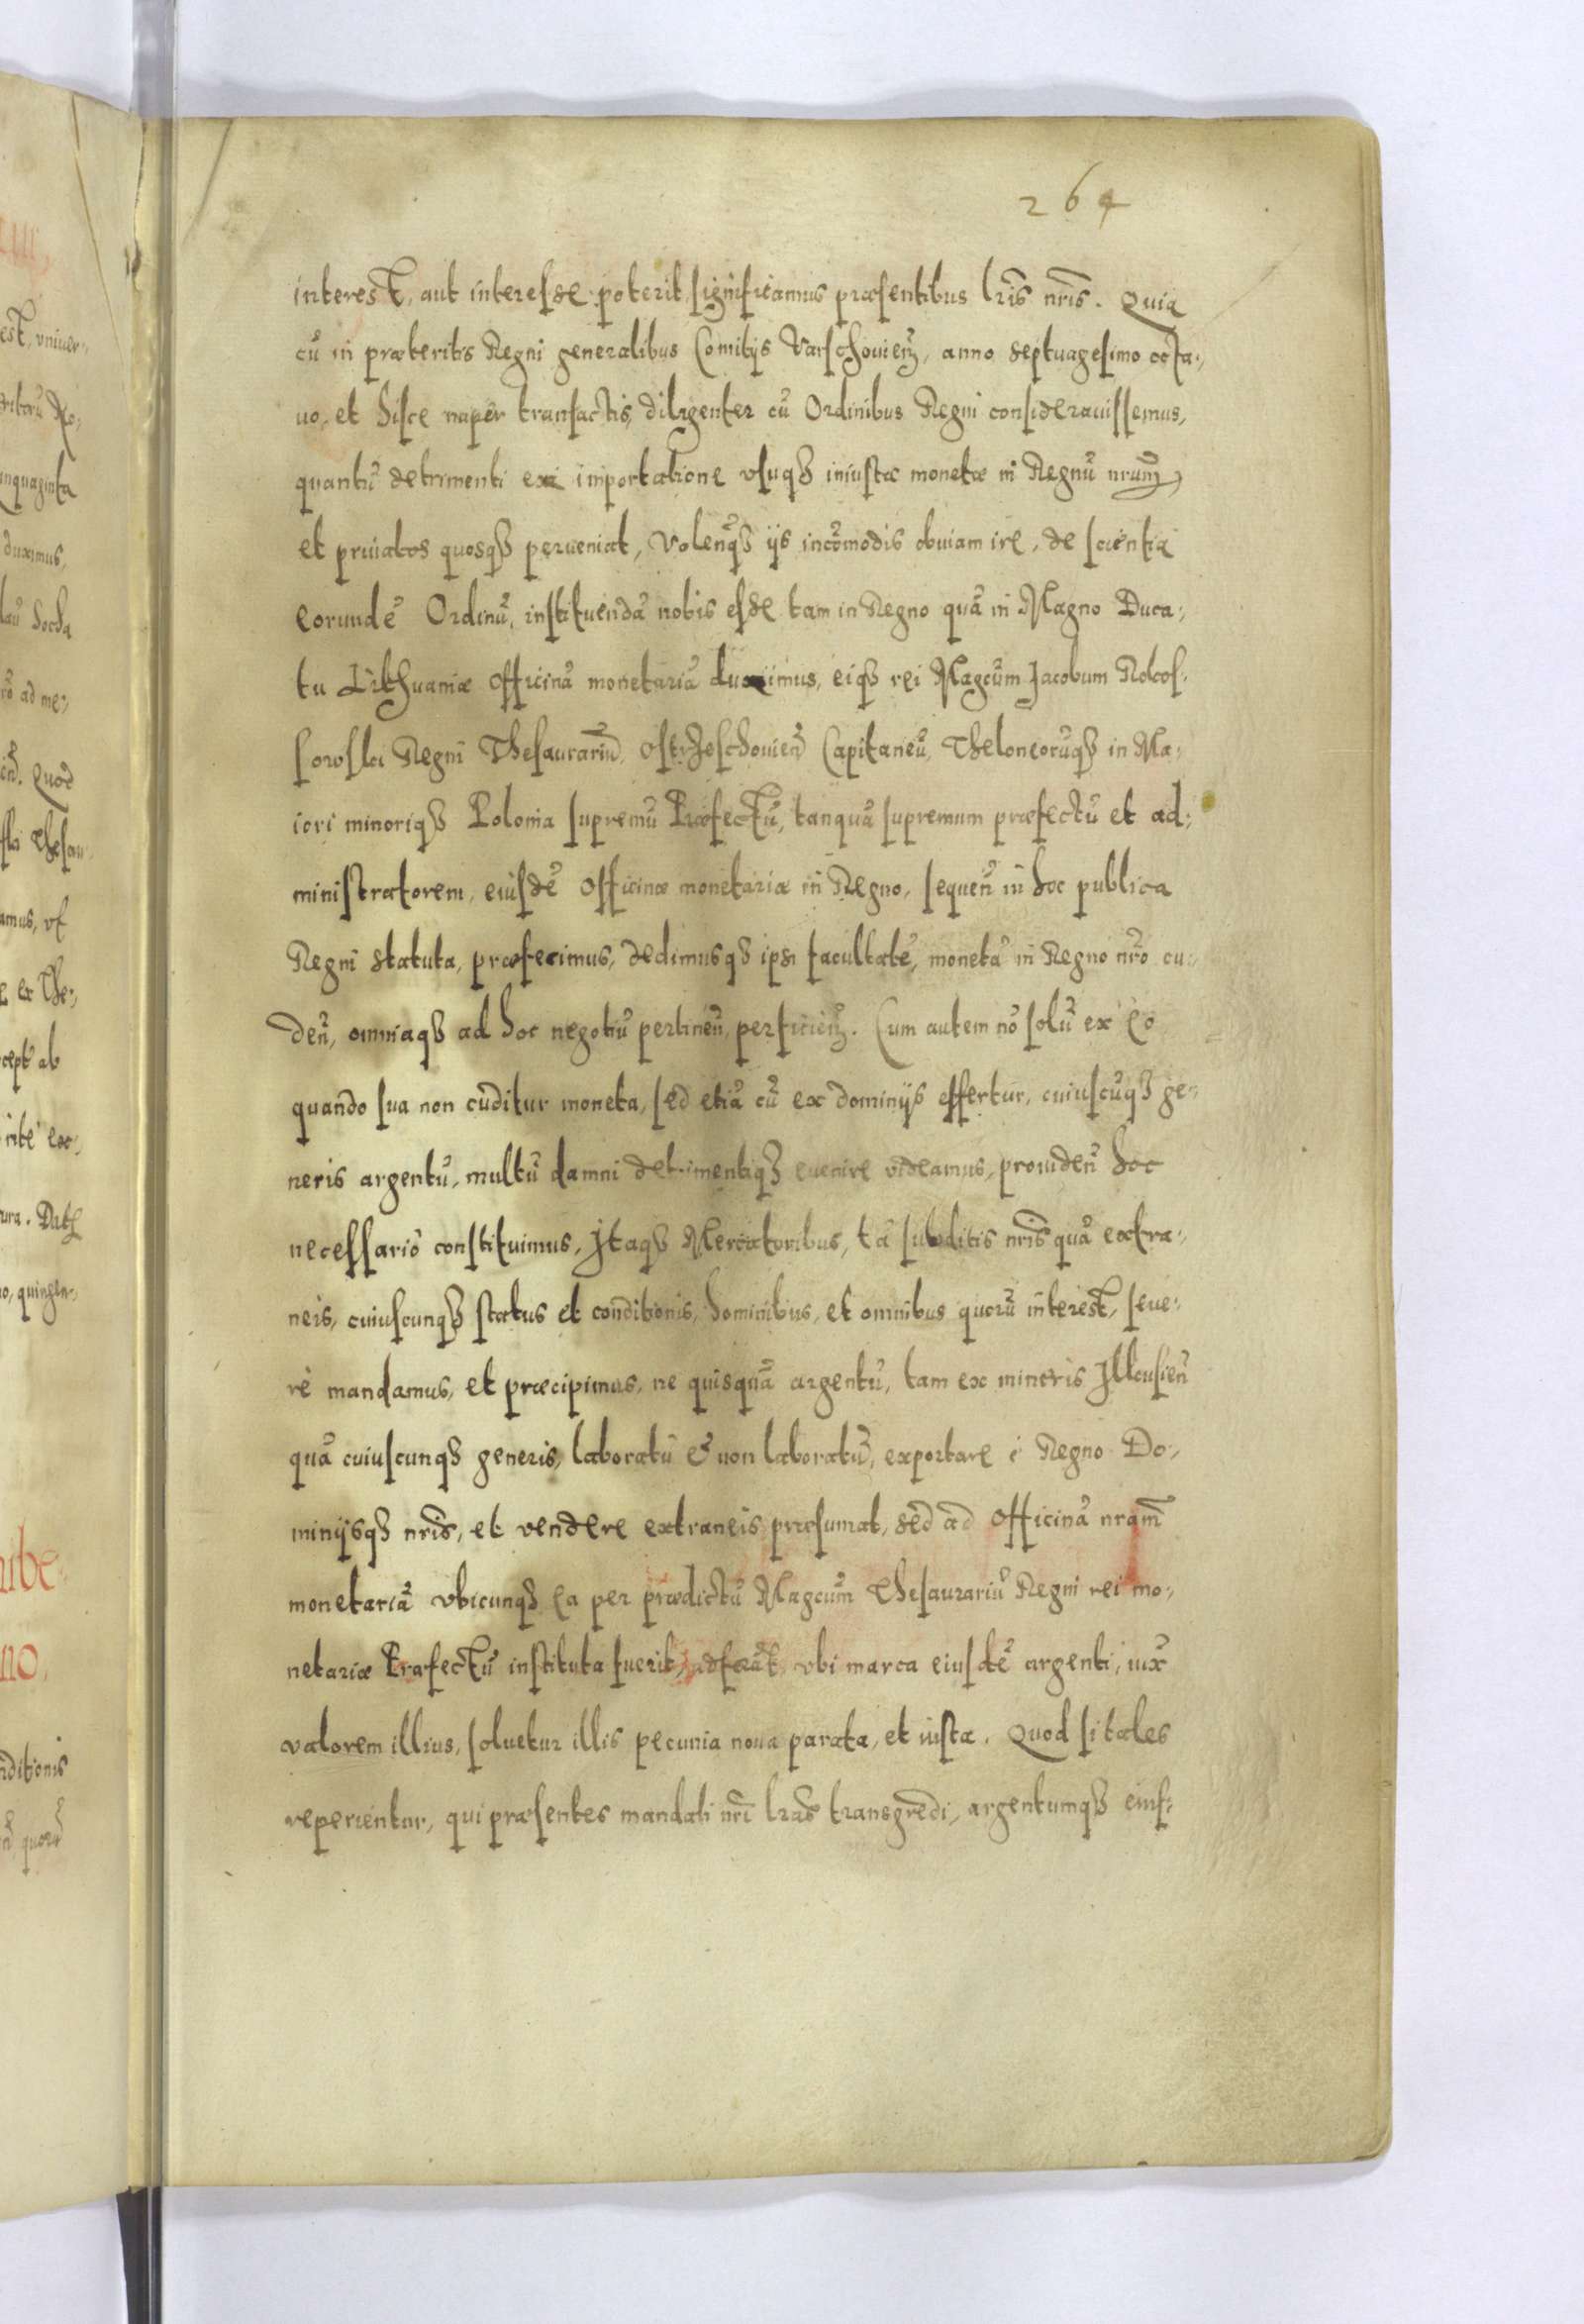 264
interest, aut interesse poterit, significamus præsentibus lr̃is nr̃is. Quia
cũ in præteritis Regni generalibus Comitijs Varschouieñ, anno septuagesimo octa-
uo, et hisce nuper transactis, diligenter cũ Ordinibus Regni considerauissemus,
quantũ detrimenti ex importatione vsuq₃ iniustæ monetæ in Regnũ nrum̃
et priuatos quosq₃ perueniat, Volenq₃ ijs incõmodis obuiam ire, de scientia
eorundẽ Ordinũ, instituendã nobis esse tam in Regno quã in Magno Duca-
tu Lithuaniæ officinã monetariã duximus, eiq₃ rei Magcũm Jacobum Rokos-
sowski Regni Thesaurariũ, Ostrzeschouieñ Capitaneũ, Theloneorũq₃ in Ma-
iori minoriq₃ Polonia supremũ Præfectũ, tanquã supremum præfectũ et ad-
ministratorem, eiusdẽ officinæ monetariæ in Regno, sequeñ in hoc publica
Regni statuta, præfecimus, dedimusq₃ ipsi facultatẽ, monetã in Regno nr̃o cu-
deñ, omniaq₃ ad hoc negotiũ pertineñ, perficieñ. Cum autem nõ solũ ex eo
quando sua non cuditur moneta, sed etiã cũ ex dominijs effertur, cuiuscũq₃ ge-
neris argentũ, multũ damni detrimentiq₃ euenire videamus, prouideñ hoc
necessariò constituimus, Itaq₃ Mercatoribus, tã subditis nr̃is quã extra-
neis, cuiuscunq₃ status et conditionis, hominibus, et omnibus quorũ interest, seue-
rè mandamus, et præcipimus, ne quisquã argentũ, tam ex mineris Illcusieñ
quã cuiuscunq₃ generis, laboratũ & non laboratũ, exportare è Regno Do-
minijsq₃ nr̃is, et vendere extraneis præsumat, sed ad officinã nram̃
monetariã vbicunq₃ ea per prædictũ Magcũm Thesaurariũ Regni rei mo-
netariæ Præfectũ instituta fuerit, adferat, vbi marca eiusdẽ argenti, iux̃
valorem illius, soluetur illis pecunia noua parata, et iusta. Quod si tales
reperientur, qui præsentes mandati nr̃i lr̃as transgredi, argentumq₃ eius-